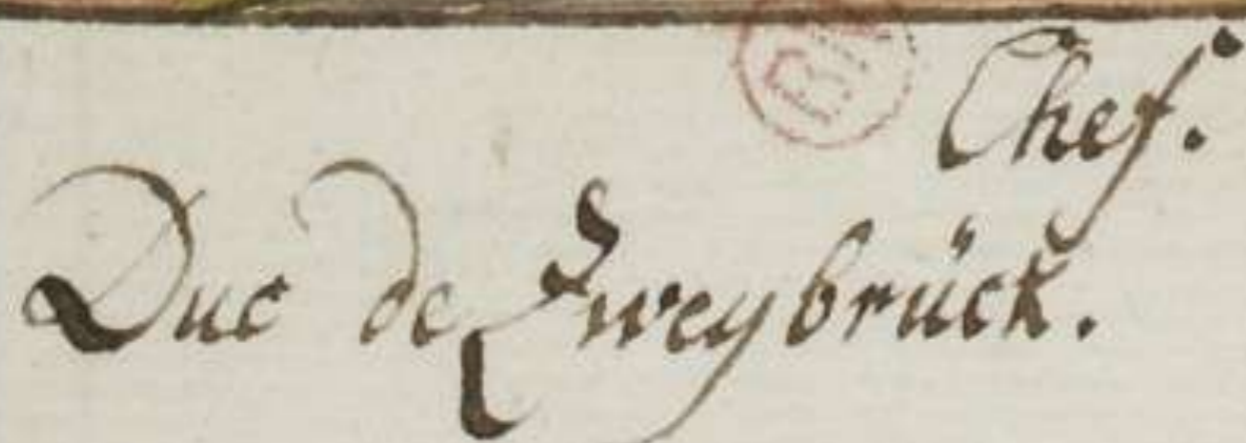 Chef.
Duc de Zweybrück.